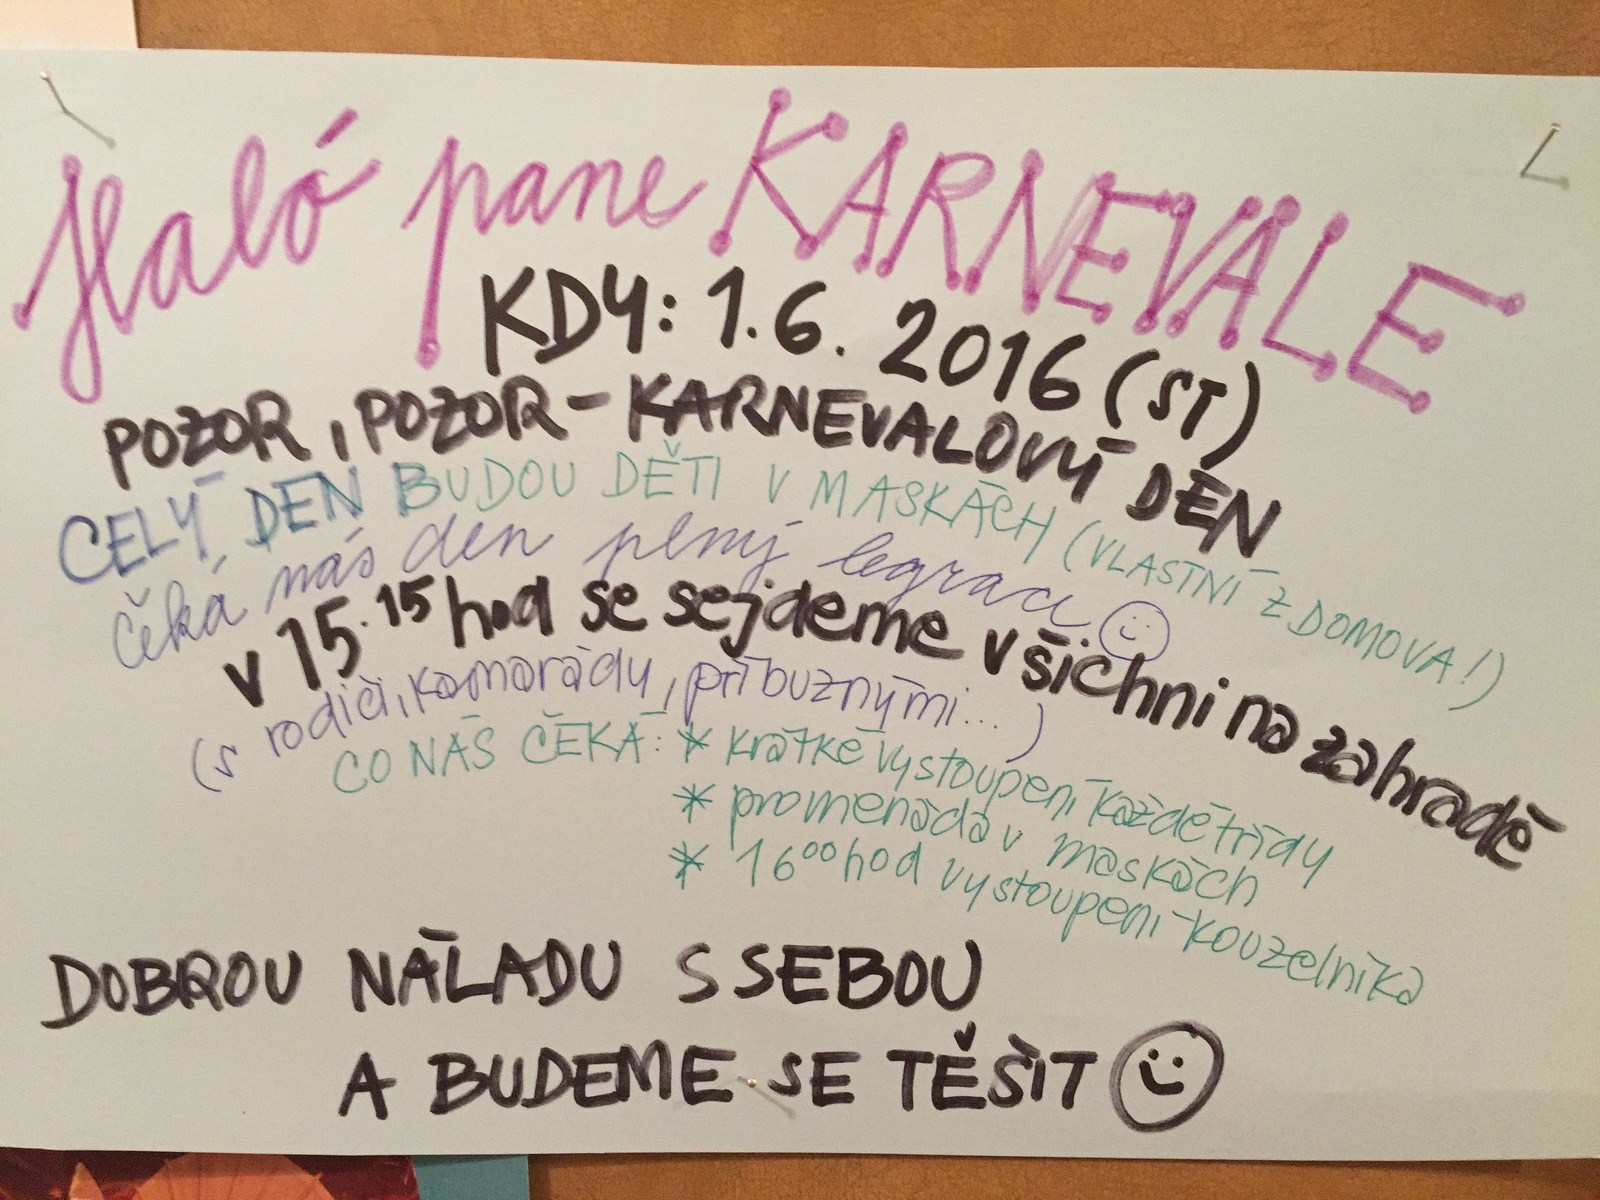 Haló pane KARNEVALE
KDY: 1.6. 2016 (ST)
POZOR, POZOR - KARNEVALOVÝ DEN
CELÝ DEN BUDOU DĚTI V MASKÁCH (VLASTNÍ Z DOMOVA!)
čeká nás den plný legrace ☺
v 15.15 hod se sejdeme všichni na zahradě
(s rodiči, kamarády, příbuznými...)
CO NÁS ČEKÁ: * krátké vystoupení každé třídy
* promenáda v maskách
* 16⁰⁰ hod vystoupení kouzelníka
DOBROU NÁLADU S SEBOU
A BUDEME SE TĚŠIT ☺